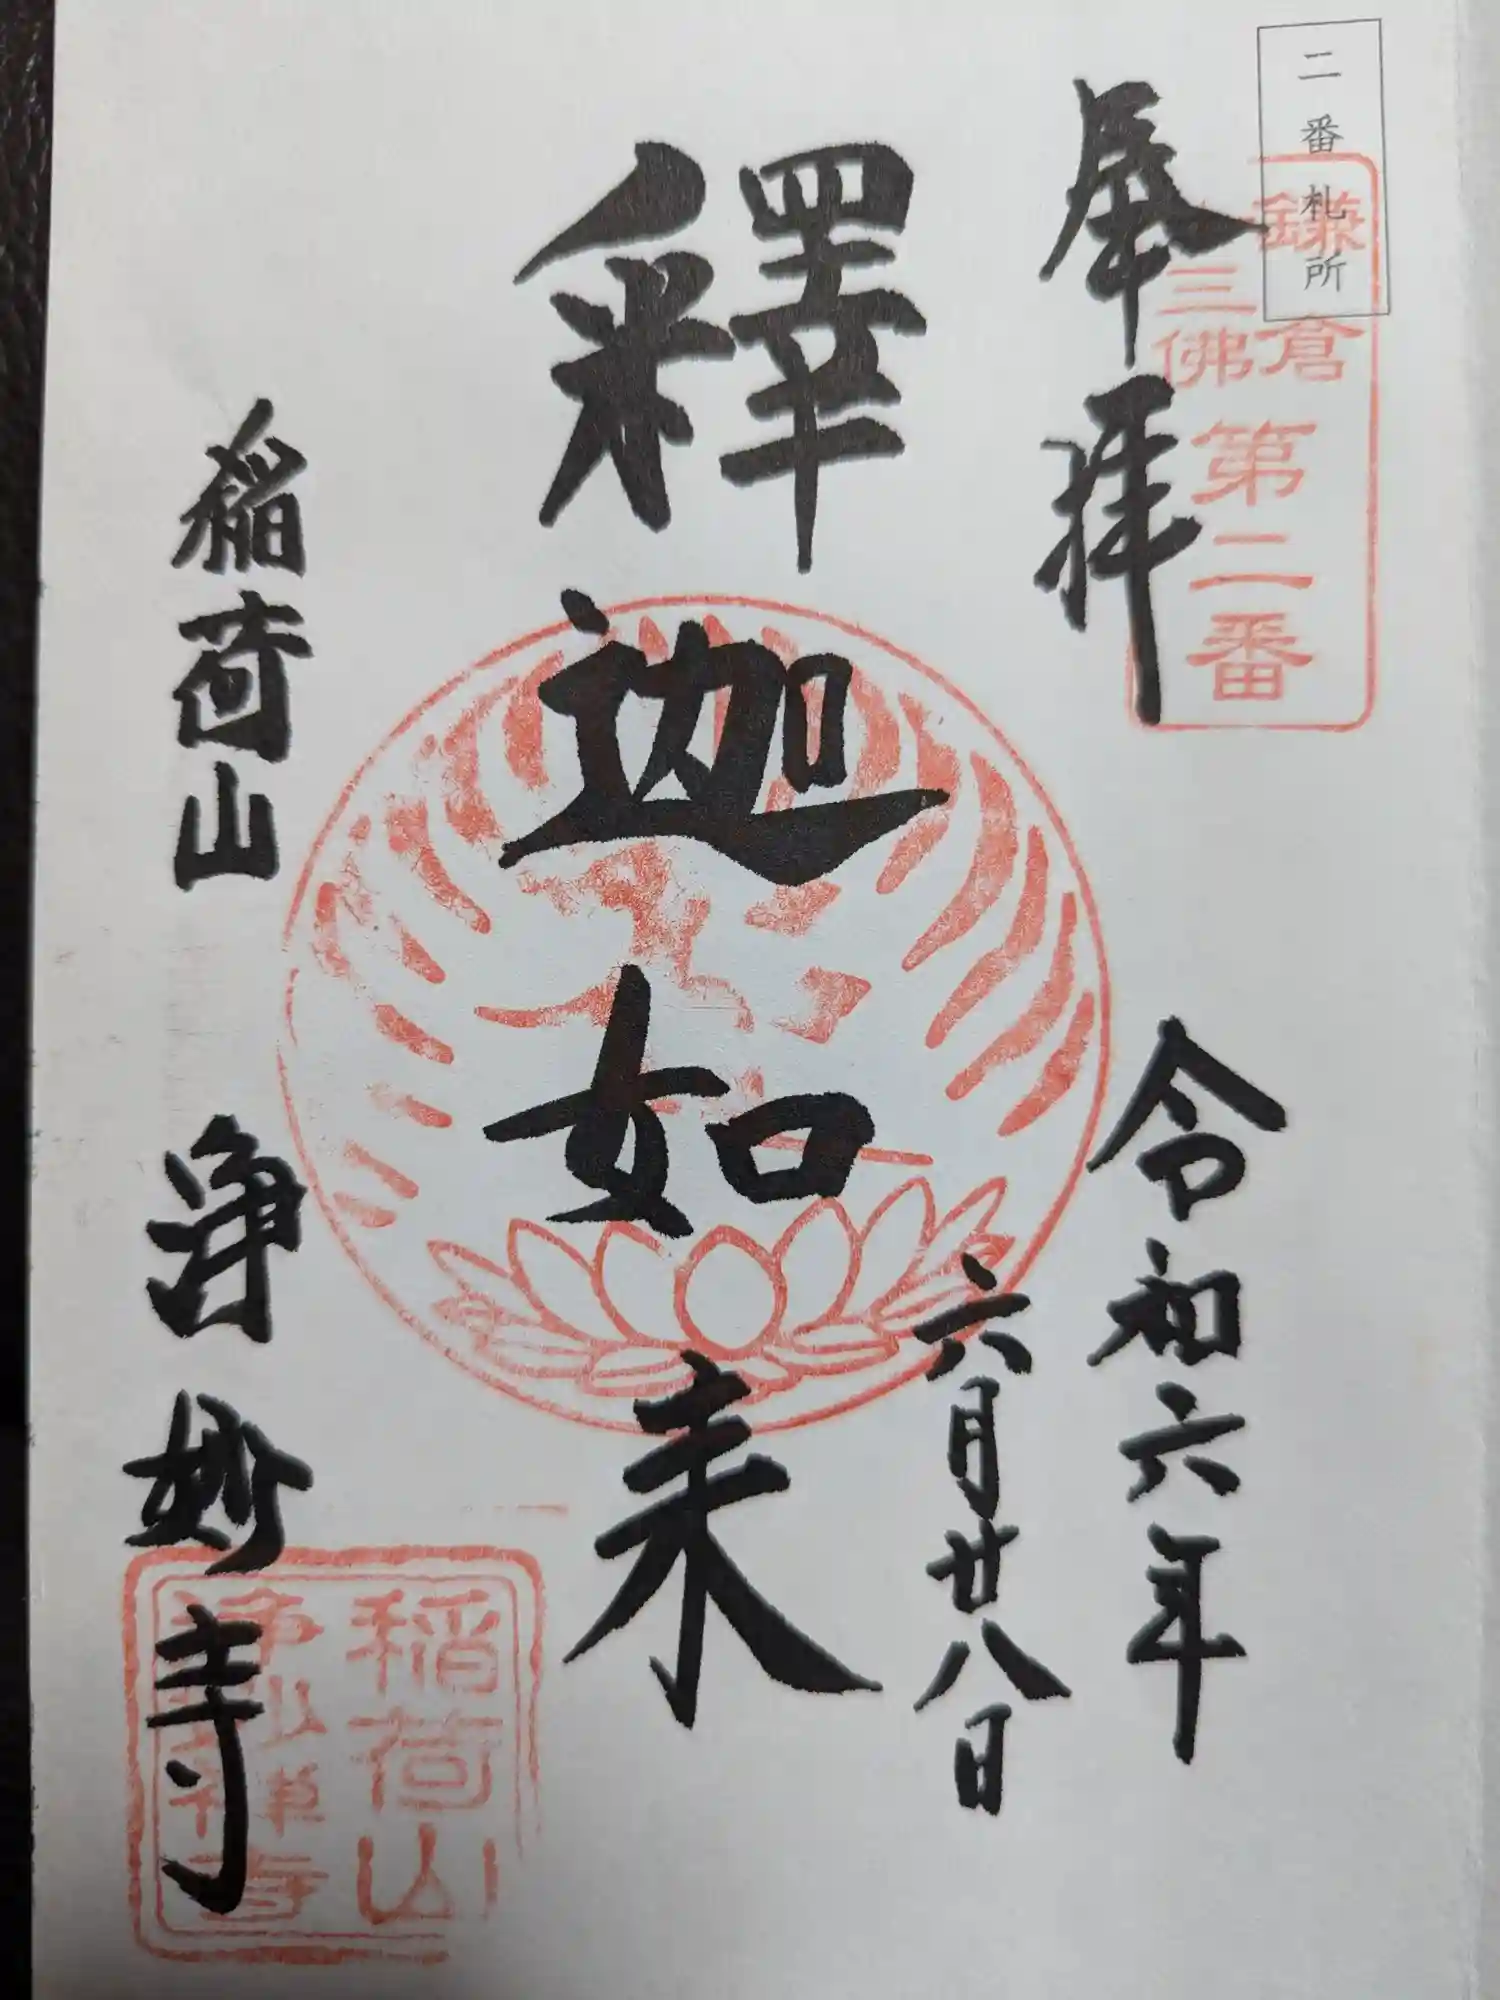 二番札所
奉拝
鎌倉
三佛
第二番
令和六年
六月廿八日
釋迦如来
稲荷山 浄妙寺
稲荷山
浄妙禅寺